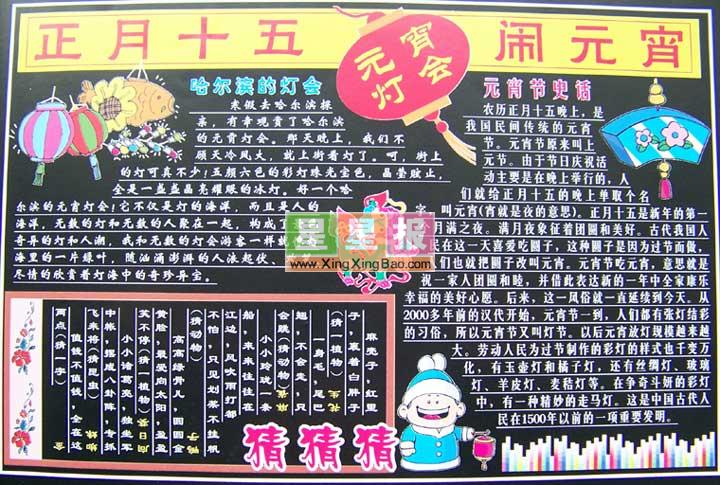 正月十五
元宵
灯会
闹元宵
哈尔滨的灯会
来假去哈尔滨探
亲,有幸观赏了哈尔滨
的元宵灯会。那天晚上,我们不
顾天冷风大,就上街看灯了。呵,街上
的灯可真不少!五颜六色的彩灯珠光宝色,晶莹眩止,
全是一盏盏晶亮耀眼的冰灯。好一个哈
尔滨的元宵灯会!它不仅是灯的海洋,而且是人的
海洋,无数的灯和无数的人聚在一起,构成了
奇异的灯和人潮,我和无数的灯会游客一样就
海里的一片绿叶,随汹涌澎湃的人流起伏、
尽情的欣赏着灯海中的奇珍异宝。
元宵节史话
农历正月十五晚上,是
我国民间传统的元宵
节。元宵节原来叫上
元节。由于节日庆祝活
动主要是在晚上举行的,人
们就给正月十五的晚上单取个名
字,叫元宵(宵就是夜的意思)。正月十五是新年的第一
月满之夜。满月夜象征着团圆和美好。古代我国人
民在这一天喜爱吃圆子,这种圆子是因为过节而做,
们也就把圆子改叫元宵。元宵节吃元宵,意思就是
祝一家人团圆和睦,并借此表达新的一年中全家康乐
幸福的美好心愿。后来,这一风俗就一直延续到今天。从
2000多年前的汉代开始,元宵节一到,人们都有张灯结彩
的习俗,所以元宵节又叫灯节。以后元宵放灯规模越来越
大。劳动人民为过节制作的彩灯的样式也千变万
化,有玉壶灯和橘子灯,还有丝绸灯、玻璃
灯、羊皮灯、麦秸灯等。在争奇斗妍的彩灯
中,有一种精妙的走马灯。这是中国古代人
民在1500年以前的一项重要发明。
星星报
www.XingXingBao.com
麻壳子,红里
子,裹着白胖子
(猜一植物) 花生
一身毛,尾巴
翘,不会走,只
会跳(猜动物) 麻雀
小小玲珑一条
船,来来往往在
江边,风吹雨打都
不怕,只见划桨不挂帆
(猜动物) 鸭子
高高绿骨儿,圆圆金
黄脸,最爱向太阳,盈盈
笑不停(猜一植物) 葵日向
小小诸葛亮,独坐军
中帐,摆成八卦阵,专抓
飞来将(猜昆虫) 蜘蛛
值钱不值钱,全在这
两点(猜一字) 金
猜猜猜